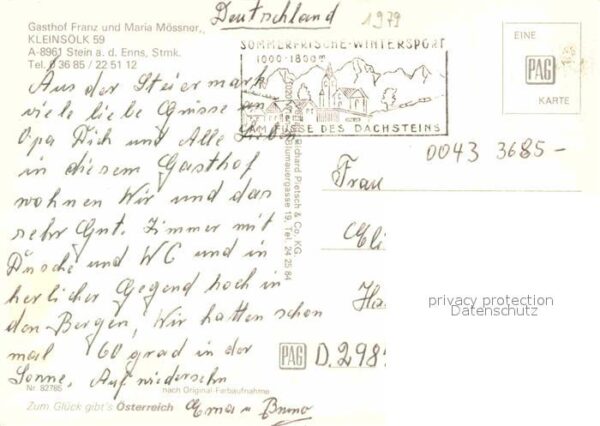 Deutschland
1979
Gasthof Franz und Maria Mössner,
KLEINSÖLK 59
A-8961 Stein a. d. Enns, Stmk.
Tel. 0 36 85 / 22 51 12
SOMMERFRISCHE-WINTERSPORT
1000-1800m
AM FUSSE DES DACHSTEINS
EINE
PAG
KARTE
Aus der Steiermark
viele liebe Grüsse an
Opa Dich und Alle Lieben
in diesem Gasthof
wohnen Wir und das
sehr Gut. Zimmer mit
Dusche und WC und in
herlicher Gegend hoch in
den Bergen, Wir hatten schon
mal 60 grad in der
Sonne, Auf wiedersehn
Erna u Bruno
Richard Pietsch & Co. KG.
Blumauergasse 19, Tel. 24 25 84
0043 3685-
Frau
Eli
Ha
privacy protection
Datenschutz
PAG
D. 298
Nr. 82785
nach Original-Farbaufnahme
Zum Glück gibt's Österreich